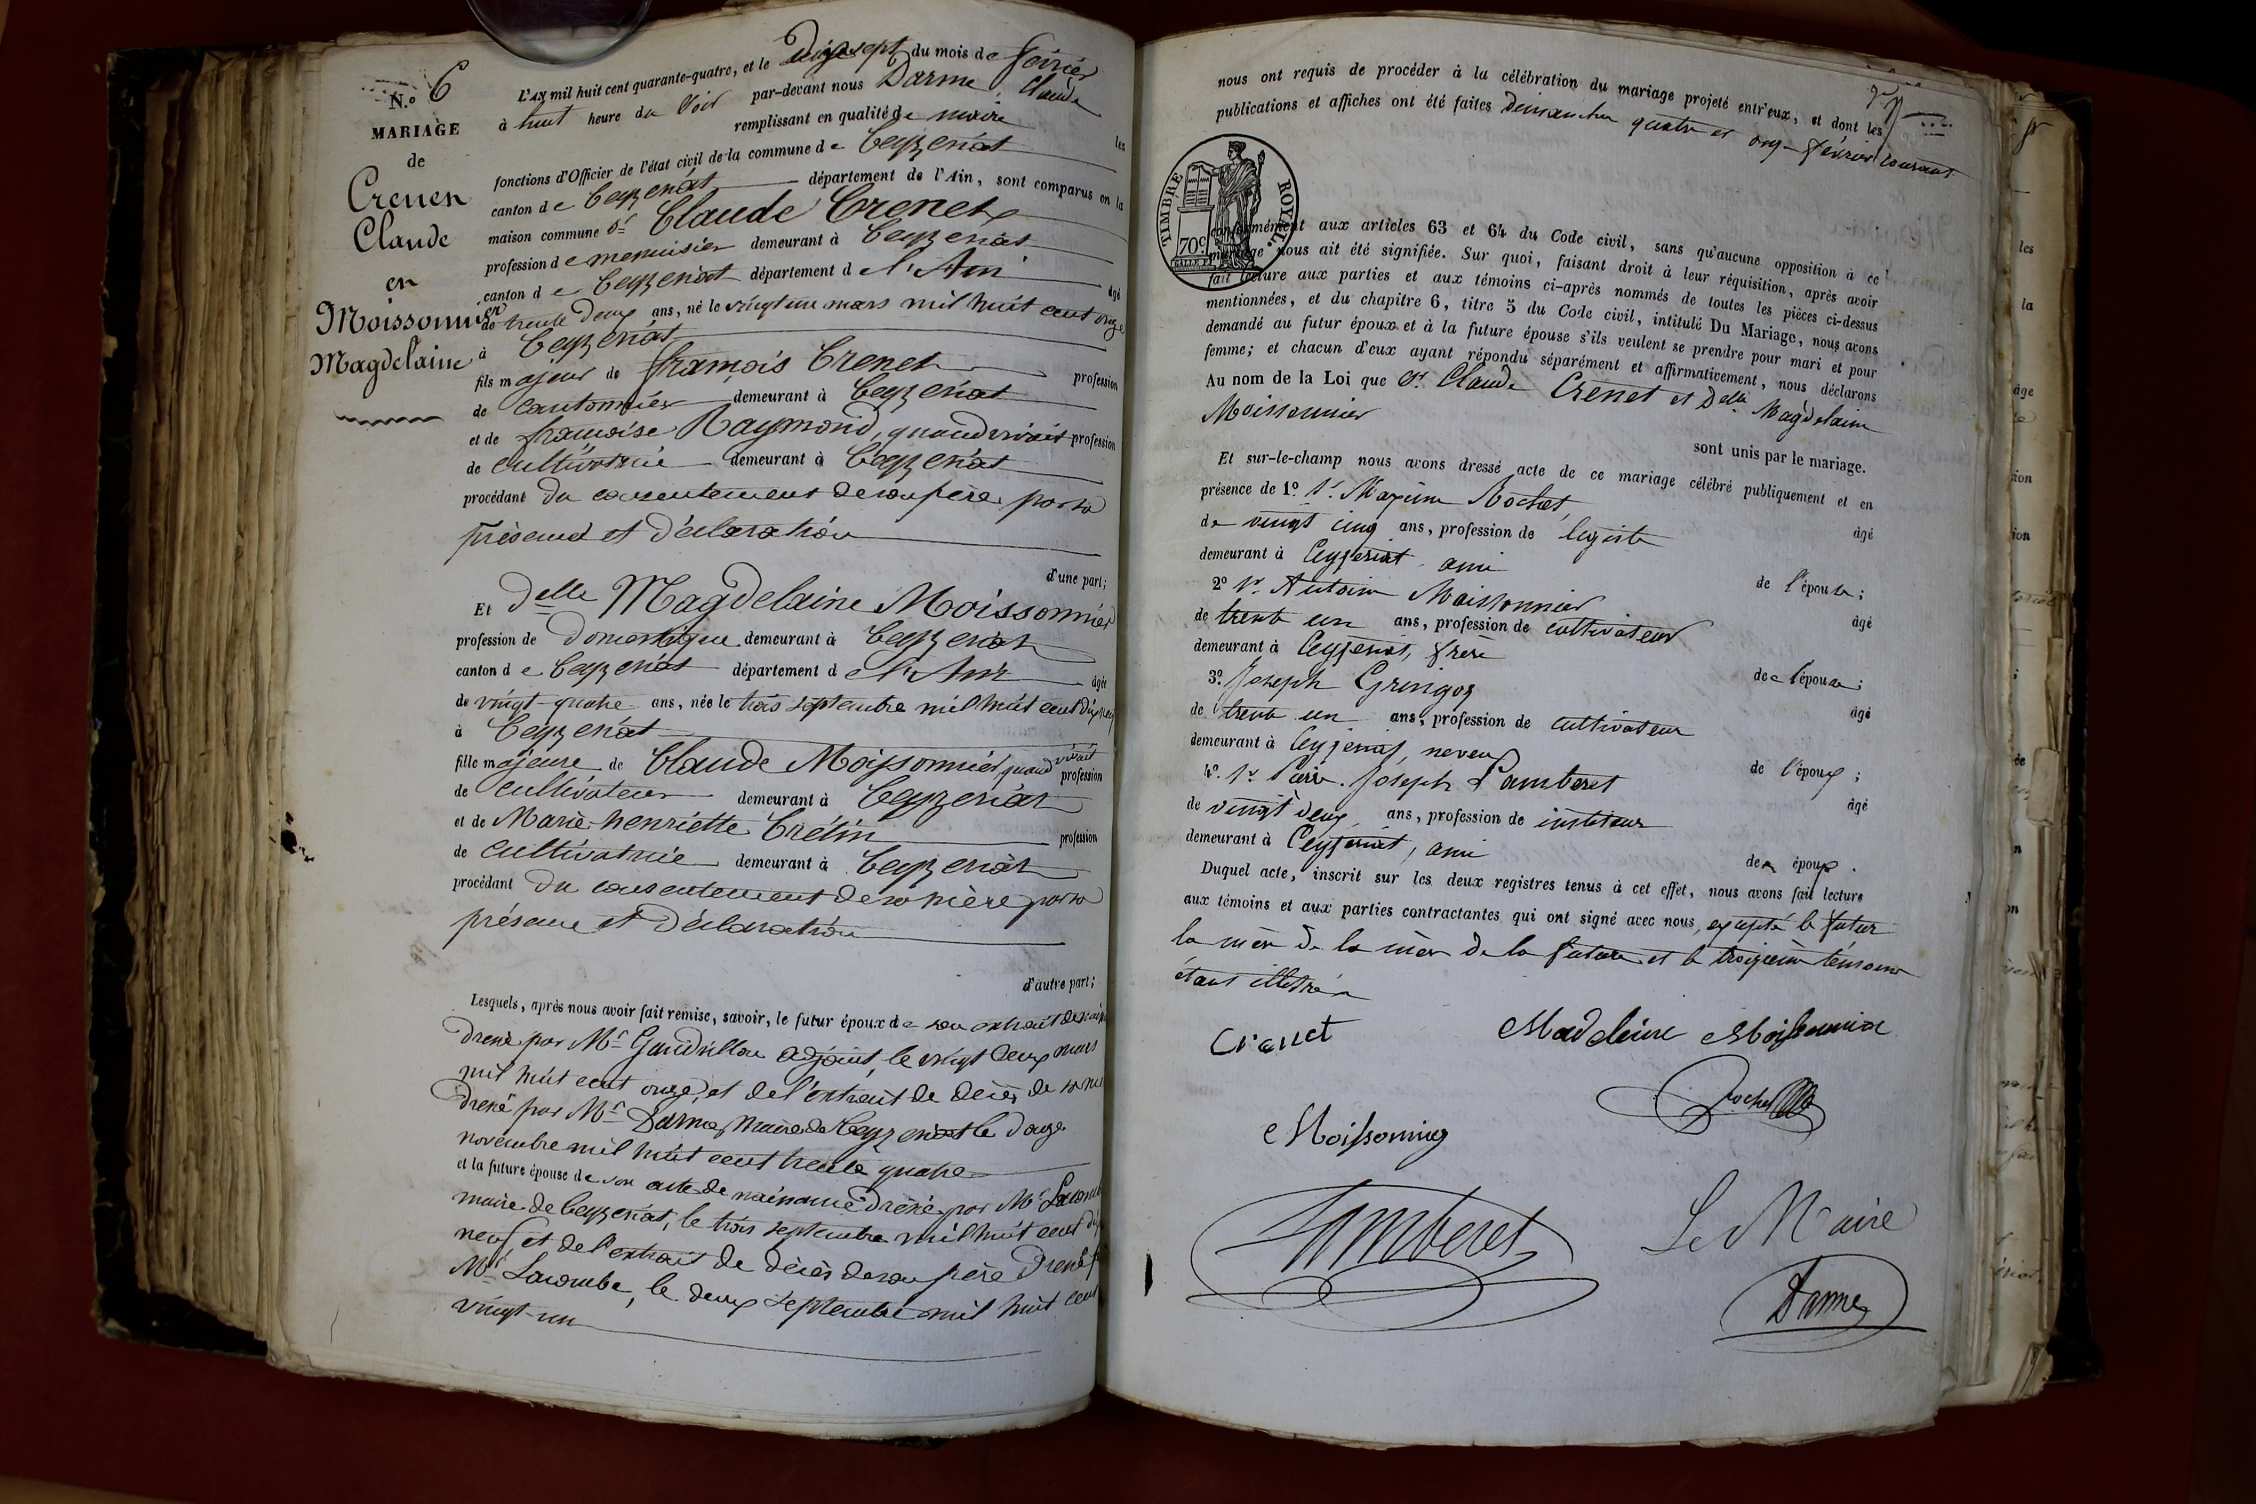 N.o 6
MARIAGE
de
Crenen
Claude
en
Moissonnier
Magdelaine
L'AN mil huit cent quarante-quatre, et le dix sept du mois de fevrier
à huit heure du soir par-devant nous Darme, Claude
remplissant en qualité de maire les
fonctions d'Officier de l'état civil de la commune de Ceyzeriat
canton de Ceyzeriat département de l'Ain, sont comparus en la
maison commune Sr Claude Crenet
profession de menuisier demeurant à Ceyzeriat
canton de Ceyzeriat département de l'Ain âgé
de trente deux ans, né le vingt un mars mil huit cent onze
à Ceyzeriat
fils majeur de françois Crenet profession
de cantonnier demeurant à Ceyzeriat
et de françoise Raymond, quand vivait profession
de cultivatrice demeurant à Ceyzeriat
procédant du consentement de son père par sa
présence et déclaration
d'une part;
Et Delle Magdelaine Moissonnier
profession de domestique demeurant à Ceyzeriat
canton de Ceyzeriat département de l'Ain âgée
de vingt-quatre ans, née le trois septembre mil huit cent dix neuf
à Ceyzeriat
fille majeure de Claude Moissonnier, quand vivait profession
de cultivateur demeurant à Ceyzeriat
et de Marie-henriette Crétin profession
de cultivatrice demeurant à Ceyzeriat
procédant du consentement de sa mère par sa
présence et déclaration
d'autre part;
Lesquels, après nous avoir fait remise, savoir, le futur époux de son extrait de
dressé par Mr Gaudrillon adjoint, le vingt deux mars
mil huit cent onze, et de l'extrait de décès de sa
dressé par Mr Darme, Maire de Ceyzeriat le douze
novembre mil huit cent trente quatre
et la future épouse de son acte de naissance dressé par Mr Lacombe
maire de Ceyzeriat, le trois septembre mil huit cent dix
neuf et de l'extrait de décès de son père dressé
Mr Lacombe, le deux septembre mil huit cent
vingt-un
nous ont requis de procéder à la célébration du mariage projeté entr'eux, et dont les
publications et affiches ont été faites dimanches quatre et onze février courant
TIMBRE ROYAL.
70c
conformément aux articles 63 et 64 du Code civil, sans qu'aucune opposition à ce
mariage nous ait été signifiée. Sur quoi, faisant droit à leur réquisition, après avoir
fait lecture aux parties et aux témoins ci-après nommés de toutes les pièces ci-dessus
mentionnées, et du chapitre 6, titre 5 du Code civil, intitulé Du Mariage, nous avons
demandé au futur époux et à la future épouse s'ils veulent se prendre pour mari et pour
femme; et chacun d'eux ayant répondu séparément et affirmativement, nous déclarons
Au nom de la Loi que Sr Claude Crenet et Delle Magdelaine
Moissonnier
sont unis par le mariage.
Et sur-le-champ nous avons dressé acte de ce mariage célébré publiquement et en
présence de 1o Sr Maxime Rochet, âgé
de vingt cinq ans, profession de legiste
demeurant à Ceyzeriat, ami de l'épouse;
2o Sr Antoine Moissonnier âgé
de trente un ans, profession de cultivateur
demeurant à Ceyzeriat, frère de l'épouse;
3o Joseph Gringoz âgé
de trente un ans, profession de cultivateur
demeurant à Ceyzeriat, neveu de l'époux;
4o Sr Pierre Joseph Lamberet âgé
de vingt deux ans, profession de instituteur
demeurant à Ceyzeriat, ami des époux.
Duquel acte, inscrit sur les deux registres tenus à cet effet, nous avons fait lecture
aux témoins et aux parties contractantes qui ont signé avec nous, excepté le futur
la mère de la mère de la future et le troisième témoins
étant illettrés
Crenet
Madeleine Moissonnier
Rochet
Moissonnier
Lamberet
Le Maire
Darme